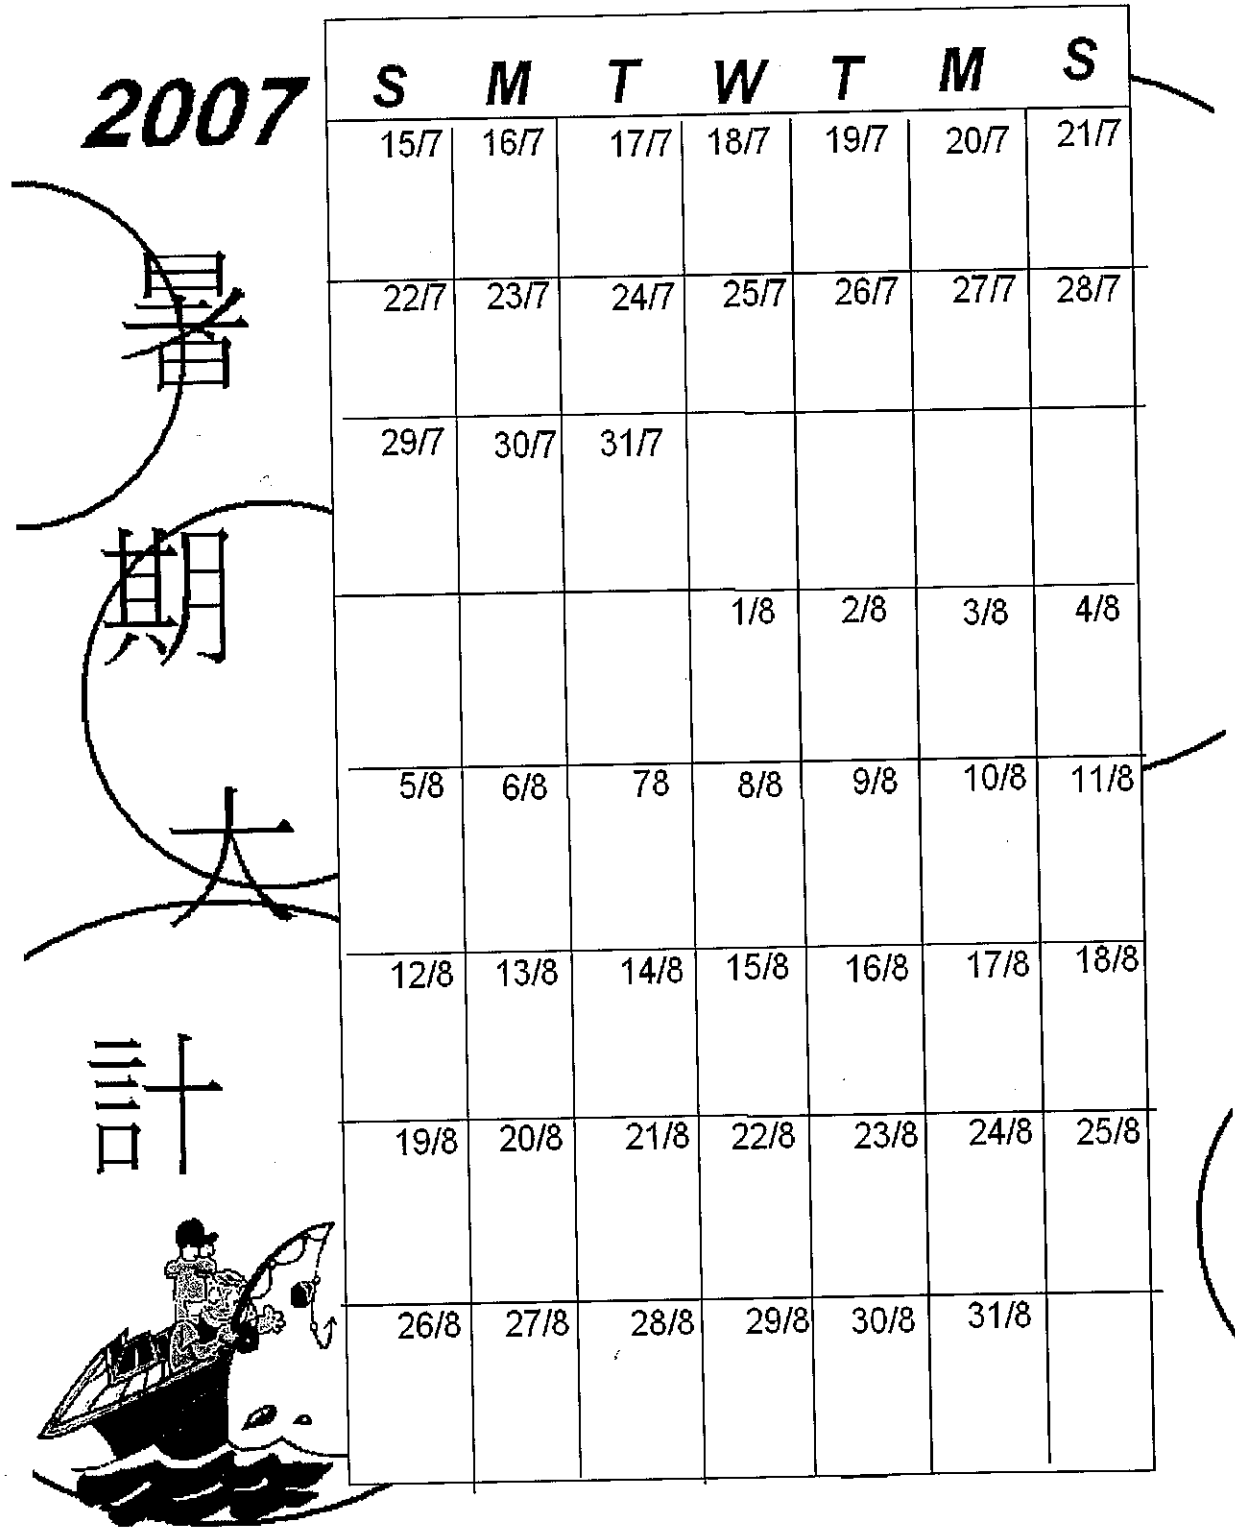 2007
暑
期
大
計
S M T W T M S
15/7 16/7 17/7 18/7 19/7 20/7 21/7
22/7 23/7 24/7 25/7 26/7 27/7 28/7
29/7 30/7 31/7
1/8 2/8 3/8 4/8
5/8 6/8 78 8/8 9/8 10/8 11/8
12/8 13/8 14/8 15/8 16/8 17/8 18/8
19/8 20/8 21/8 22/8 23/8 24/8 25/8
26/8 27/8 28/8 29/8 30/8 31/8